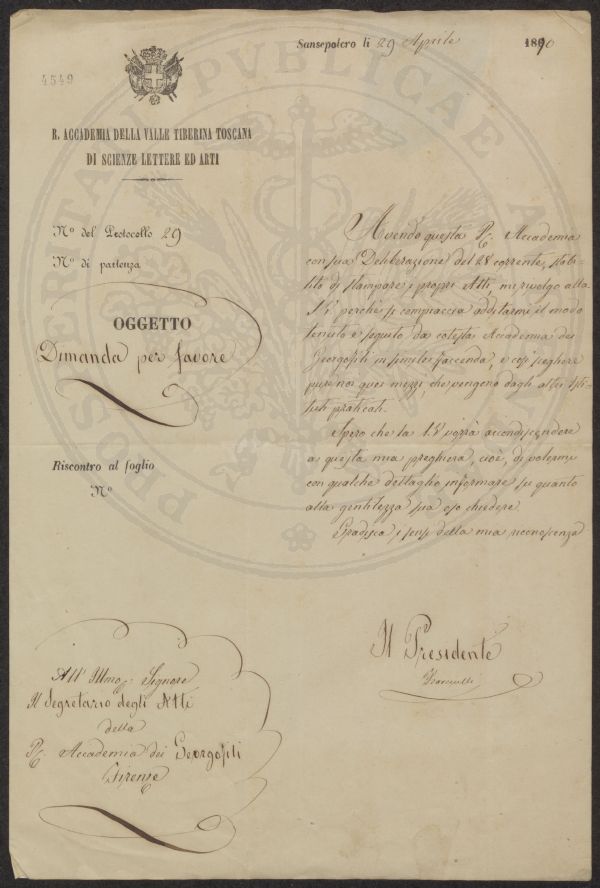 Sansepolcro li 29 Aprile 1890
4549
R. ACCADEMIA DELLA VALLE TIBERINA TOSCANA
DI SCIENZE LETTERE ED ARTI
Nº del Protocollo 29
Nº di partenza
OGGETTO
Dimanda per favore
Riscontro al foglio
Nº
Avendo questa R. Accademia
con sua Deliberazione del 28 corrente, stabi-
lito di stampare i propri Atti, mi rivolgo alla
S. V. perchè si compiaccia additarmi il modo
tenuto e seguito da cotesta Accademia dei
Georgofili in simile faccenda, e così scegliere
pure noi quei mezzi che vengono dagli altri Isti-
tuti praticati.
Spero che la S. V. vorrà accondiscendere
a questa mia preghiera, cioè, di volermi
con qualche dettaglio informare su quanto
alla gentilezza sua oso chiedere
Gradisca i sensi della mia riconoscenza
Il Presidente
All' Illmo Signore
Il Segretario degli Atti
della
R. Accademia dei Georgofili
Firenze
PUBLICAE
PROSPERITATI